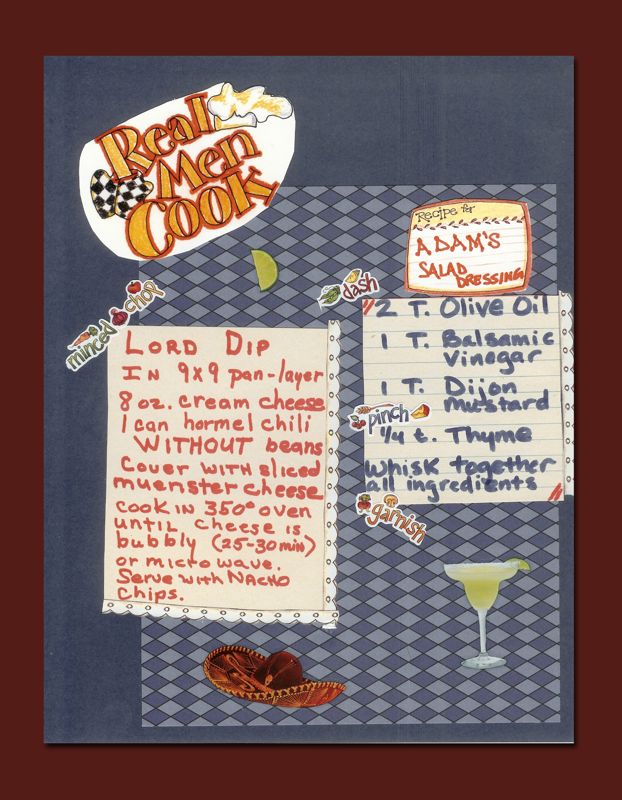 Real
Men
Cook
Recipe for
ADAM'S
SALAD
DRESSING
dash
minced chop
2 T. Olive Oil
1 T. Balsamic
Vinegar
1 T. Dijon
mustard
pinch
1/4 t. Thyme
Whisk together
all ingredients
garnish
LORD DIP
IN 9x9 pan-layer
8 oz. cream cheese
1 can hormel chili
WITHOUT beans
Cover WITH sliced
muenster cheese
COOK IN 350° oven
UNTIL cheese is
bubbly (25-30 min)
or microwave.
Serve with NACHO
Chips.